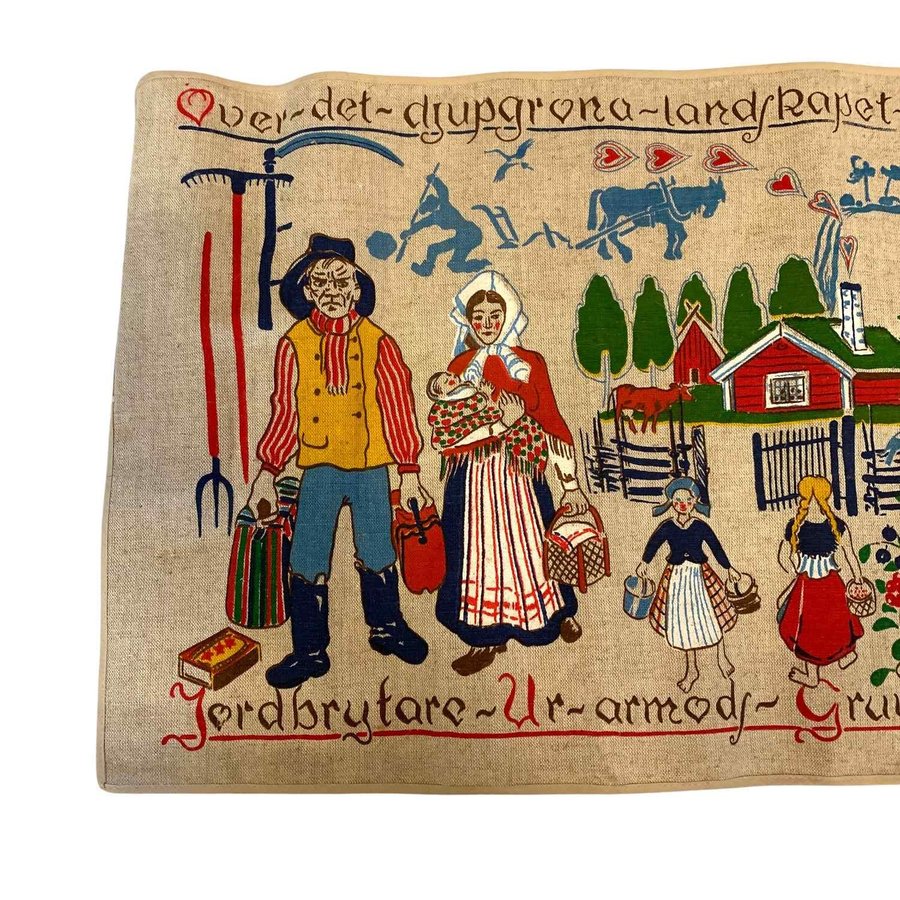 Över-det-djupgröna-landskapet-
Jordbrytare-Ur-armods-